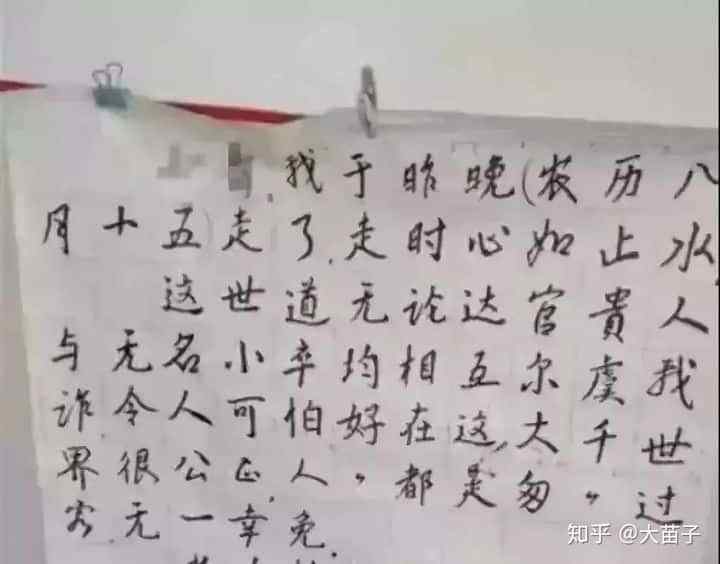 我于昨晚(农历八
月十五)走了,走时心如止水,
这世道无论达官贵人
与无名小卒均相互尔虞我
诈,令人可怕,好在这大千世
界很公正,人人都是匆匆过
客,无一幸免.
知乎 @大苗子